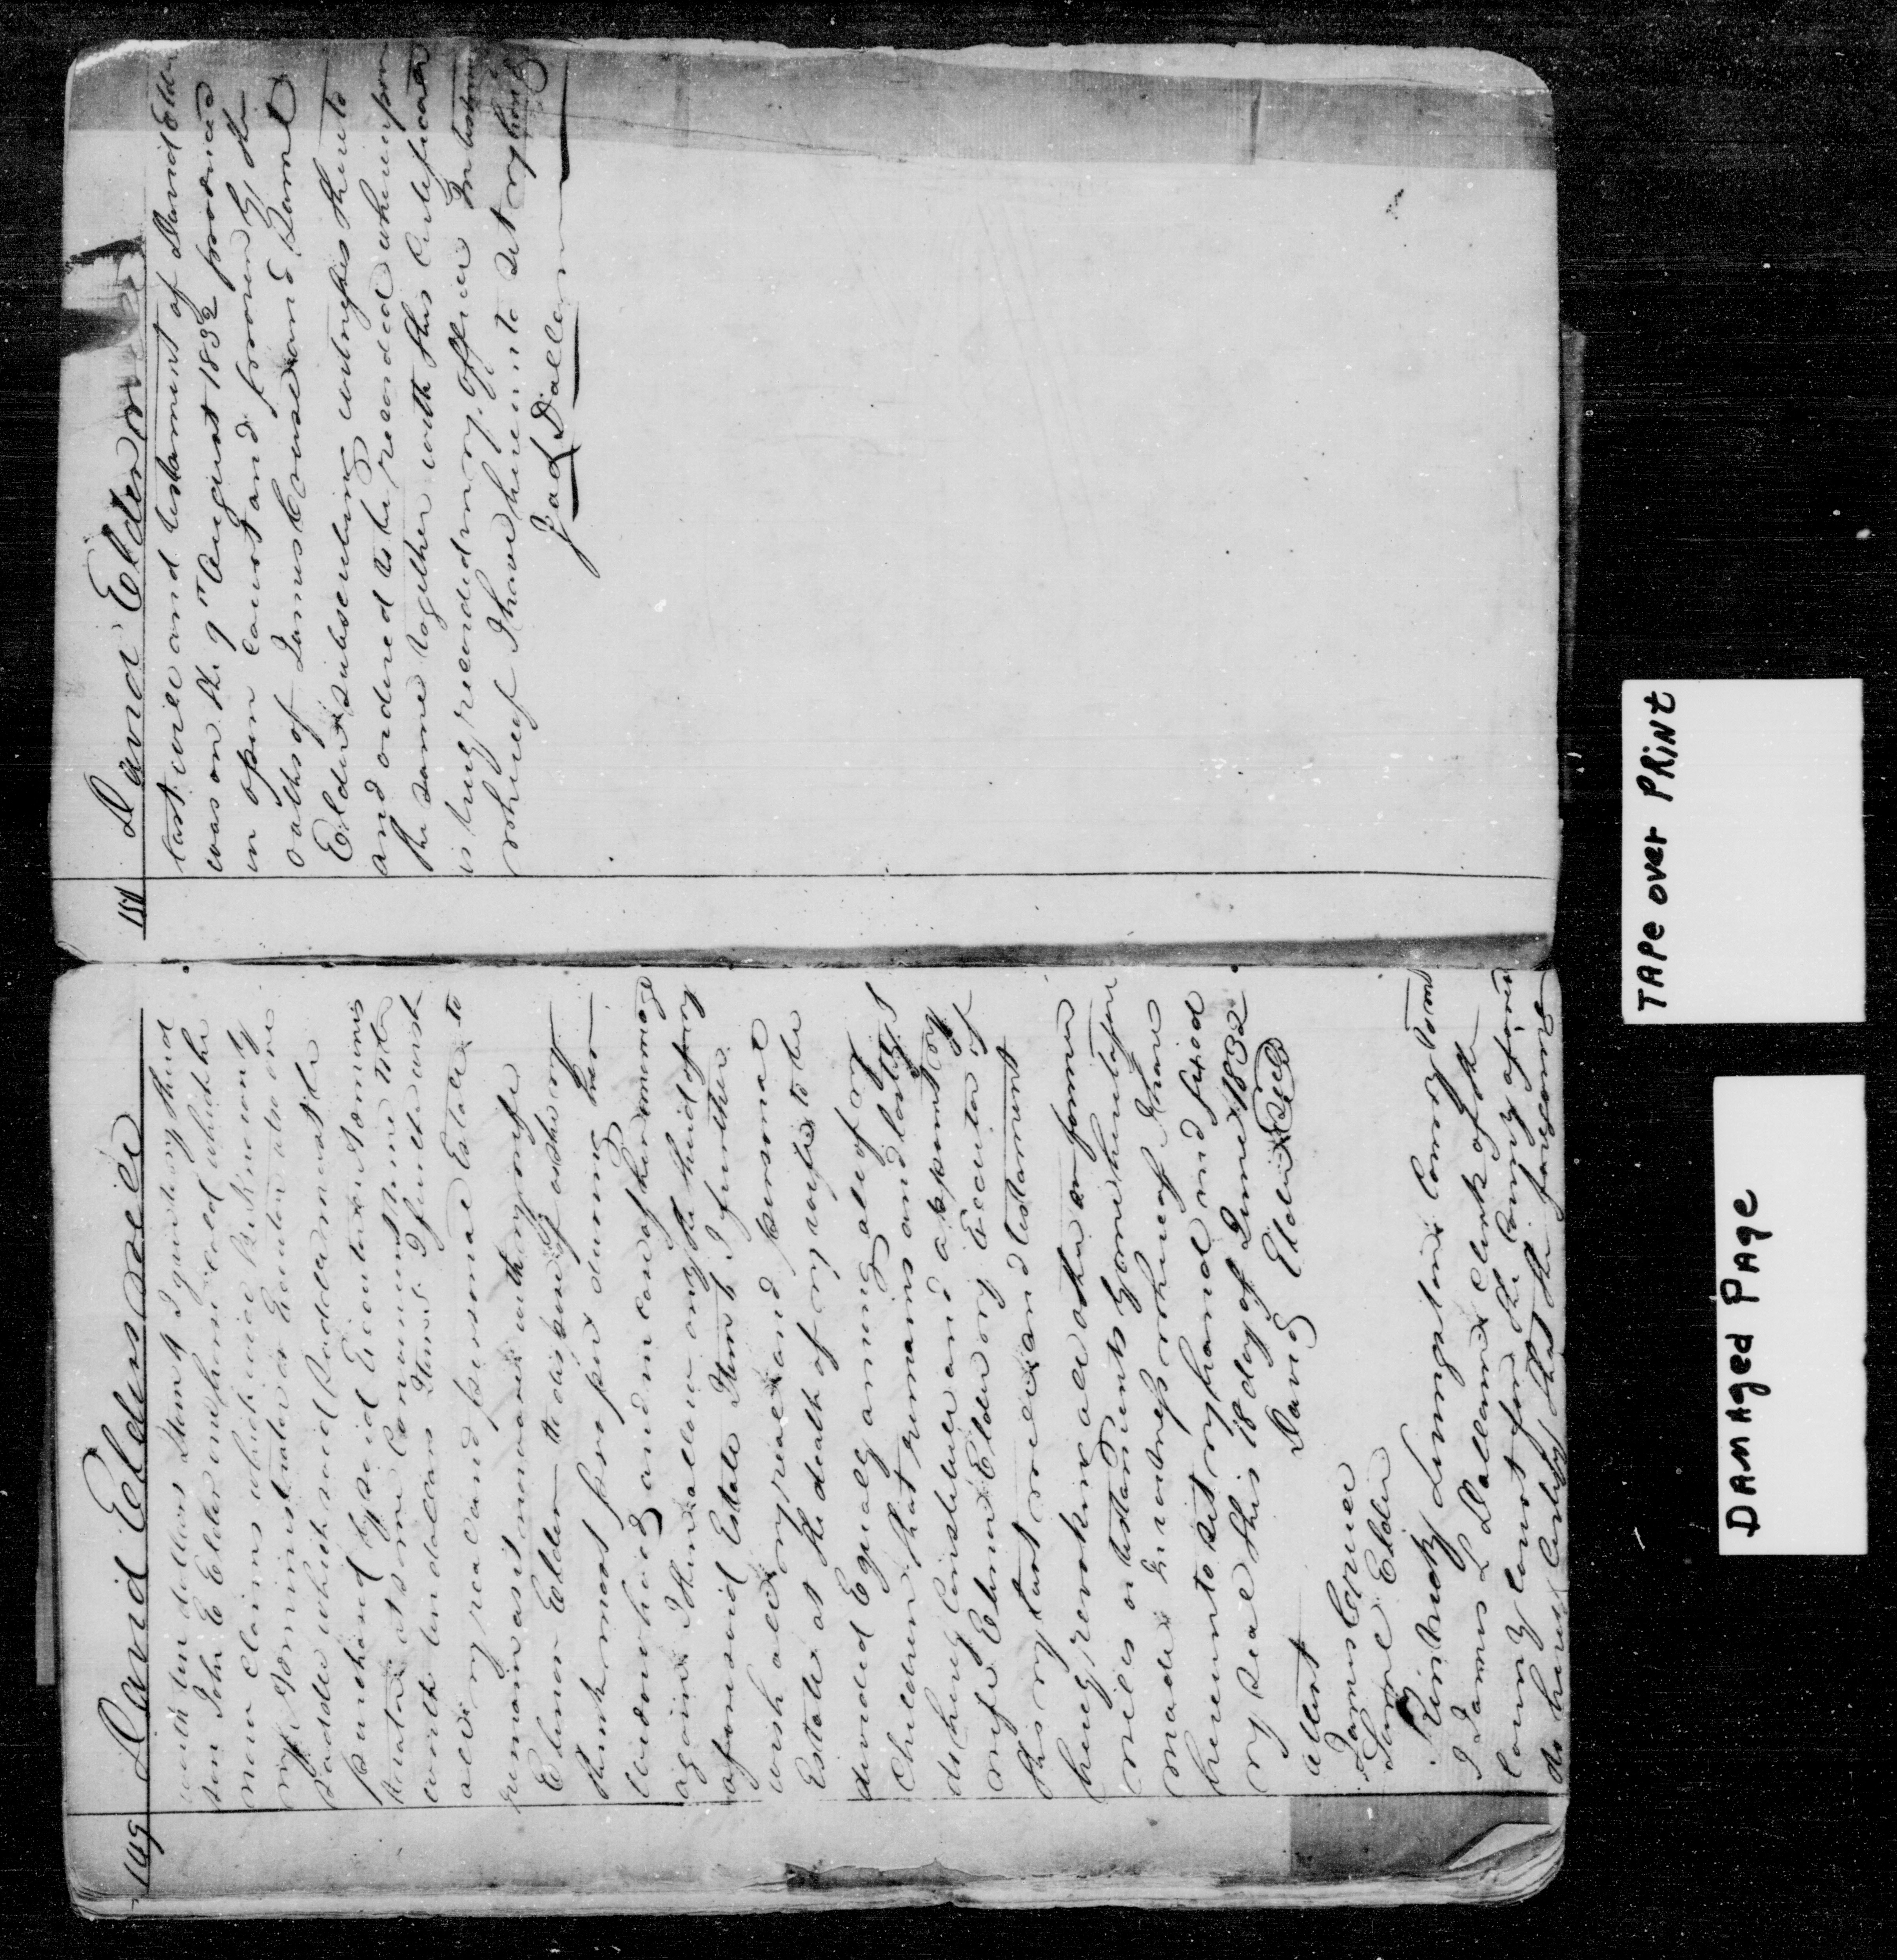 149 David Elders Will
worth ten dollars Item 4 I give to my third
son John E Elder one horse colt which he
now claims which will be his manly
my administrator or Executor also one
Saddle which said Saddle must be
purchased by said Executor or Adminis
trator at some convenient time to be
worth ten dollars Item 5 I further wish
all my real and personal Estate to
remain as it now are with my wife
Elenor Elder to dispose of as she may
think most proper during her
widowhood and in case of her marriage
again I then allow only the third of my
aforesaid Estate Item 6 I further
wish all my real and personal
Estate at the death of my wife to be
divided Equally among all of my
Children that remains and lastly I
do hereby Constitute and appoint my
wife Elenor Elder my Executor of
this my last will and testament
hereby revoking all other or former
wills or testaments by me heretofore
made In witness whereof I have
hereunto set my hand and fixed
my seal this 18 day of June 1832
David Elder Seal
attest
James Cruce
Saml Elder
Kintucky Livingston County Towit
I James L Dallam Clerk of the
County Court for the County aforesaid
do hereby Certify that the foregoing
151 David Elder
last will and testament of David Elder
was on the 9th August 1832 produced
in open Court and proven by the
oaths of James Cruse and Saml
Elder subscribing witnesses thereto
and ordered to be recorded whereupon
the same together with this Certificate
is truly recorded in my office In testimony
whereof I have hereunto set my hand
Jas L Dallam
TAPE over PRiNt
DAMAged PAge